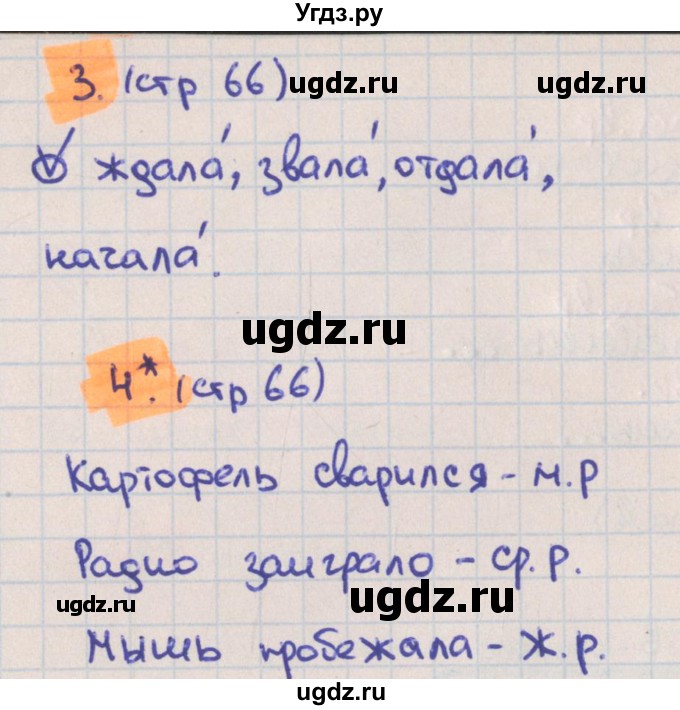 Угдз.ру
3. (стр 66) ugdz.ru ugdz.ru
ждала́, звала́, отдала́,
начала́.
ugdz.ru
4*. (стр 66)
Картофель сварился - м.р
Радио заиграло - ср.р.
ugdz.ru ugdz.ru
Мышь пробежала - ж.р.
ugdz.ru